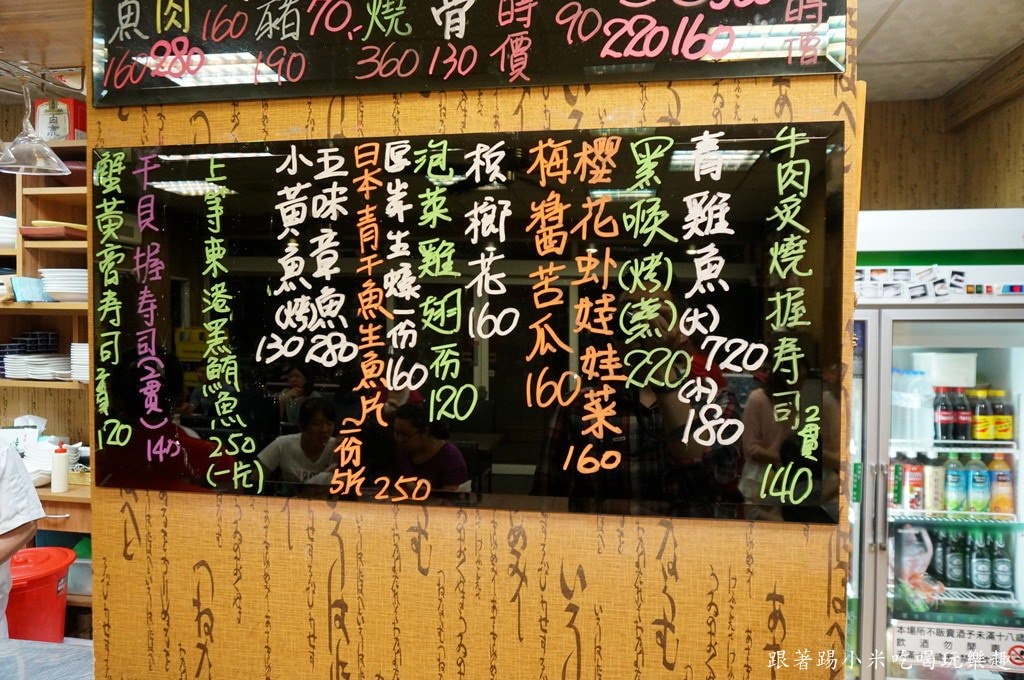 魚 160
肉 280
160
豬 190
70
燒 360
骨 130
時價
90
220
160
時價
牛肉炙燒握壽司 2貫 140
青雞魚(大)720 (小)180
黑喉(烤)(蒸)220
櫻花虾娃娃菜 160
梅醬苦瓜 160
檳榔花 160
泡菜雞翅一份 120
厚岸生蠔一份 160
日本青干魚生魚片 一份5片 250
五味章魚 280
小黃魚(烤)130
上等東港黑鮪魚 250 (一片)
干貝握寿司(2貫)140
蟹黃膏寿司 2貫 120
本場所不販賣酒予未滿十八歲
飲酒勿開
未滿十八
跟著踢小米吃喝玩樂趣